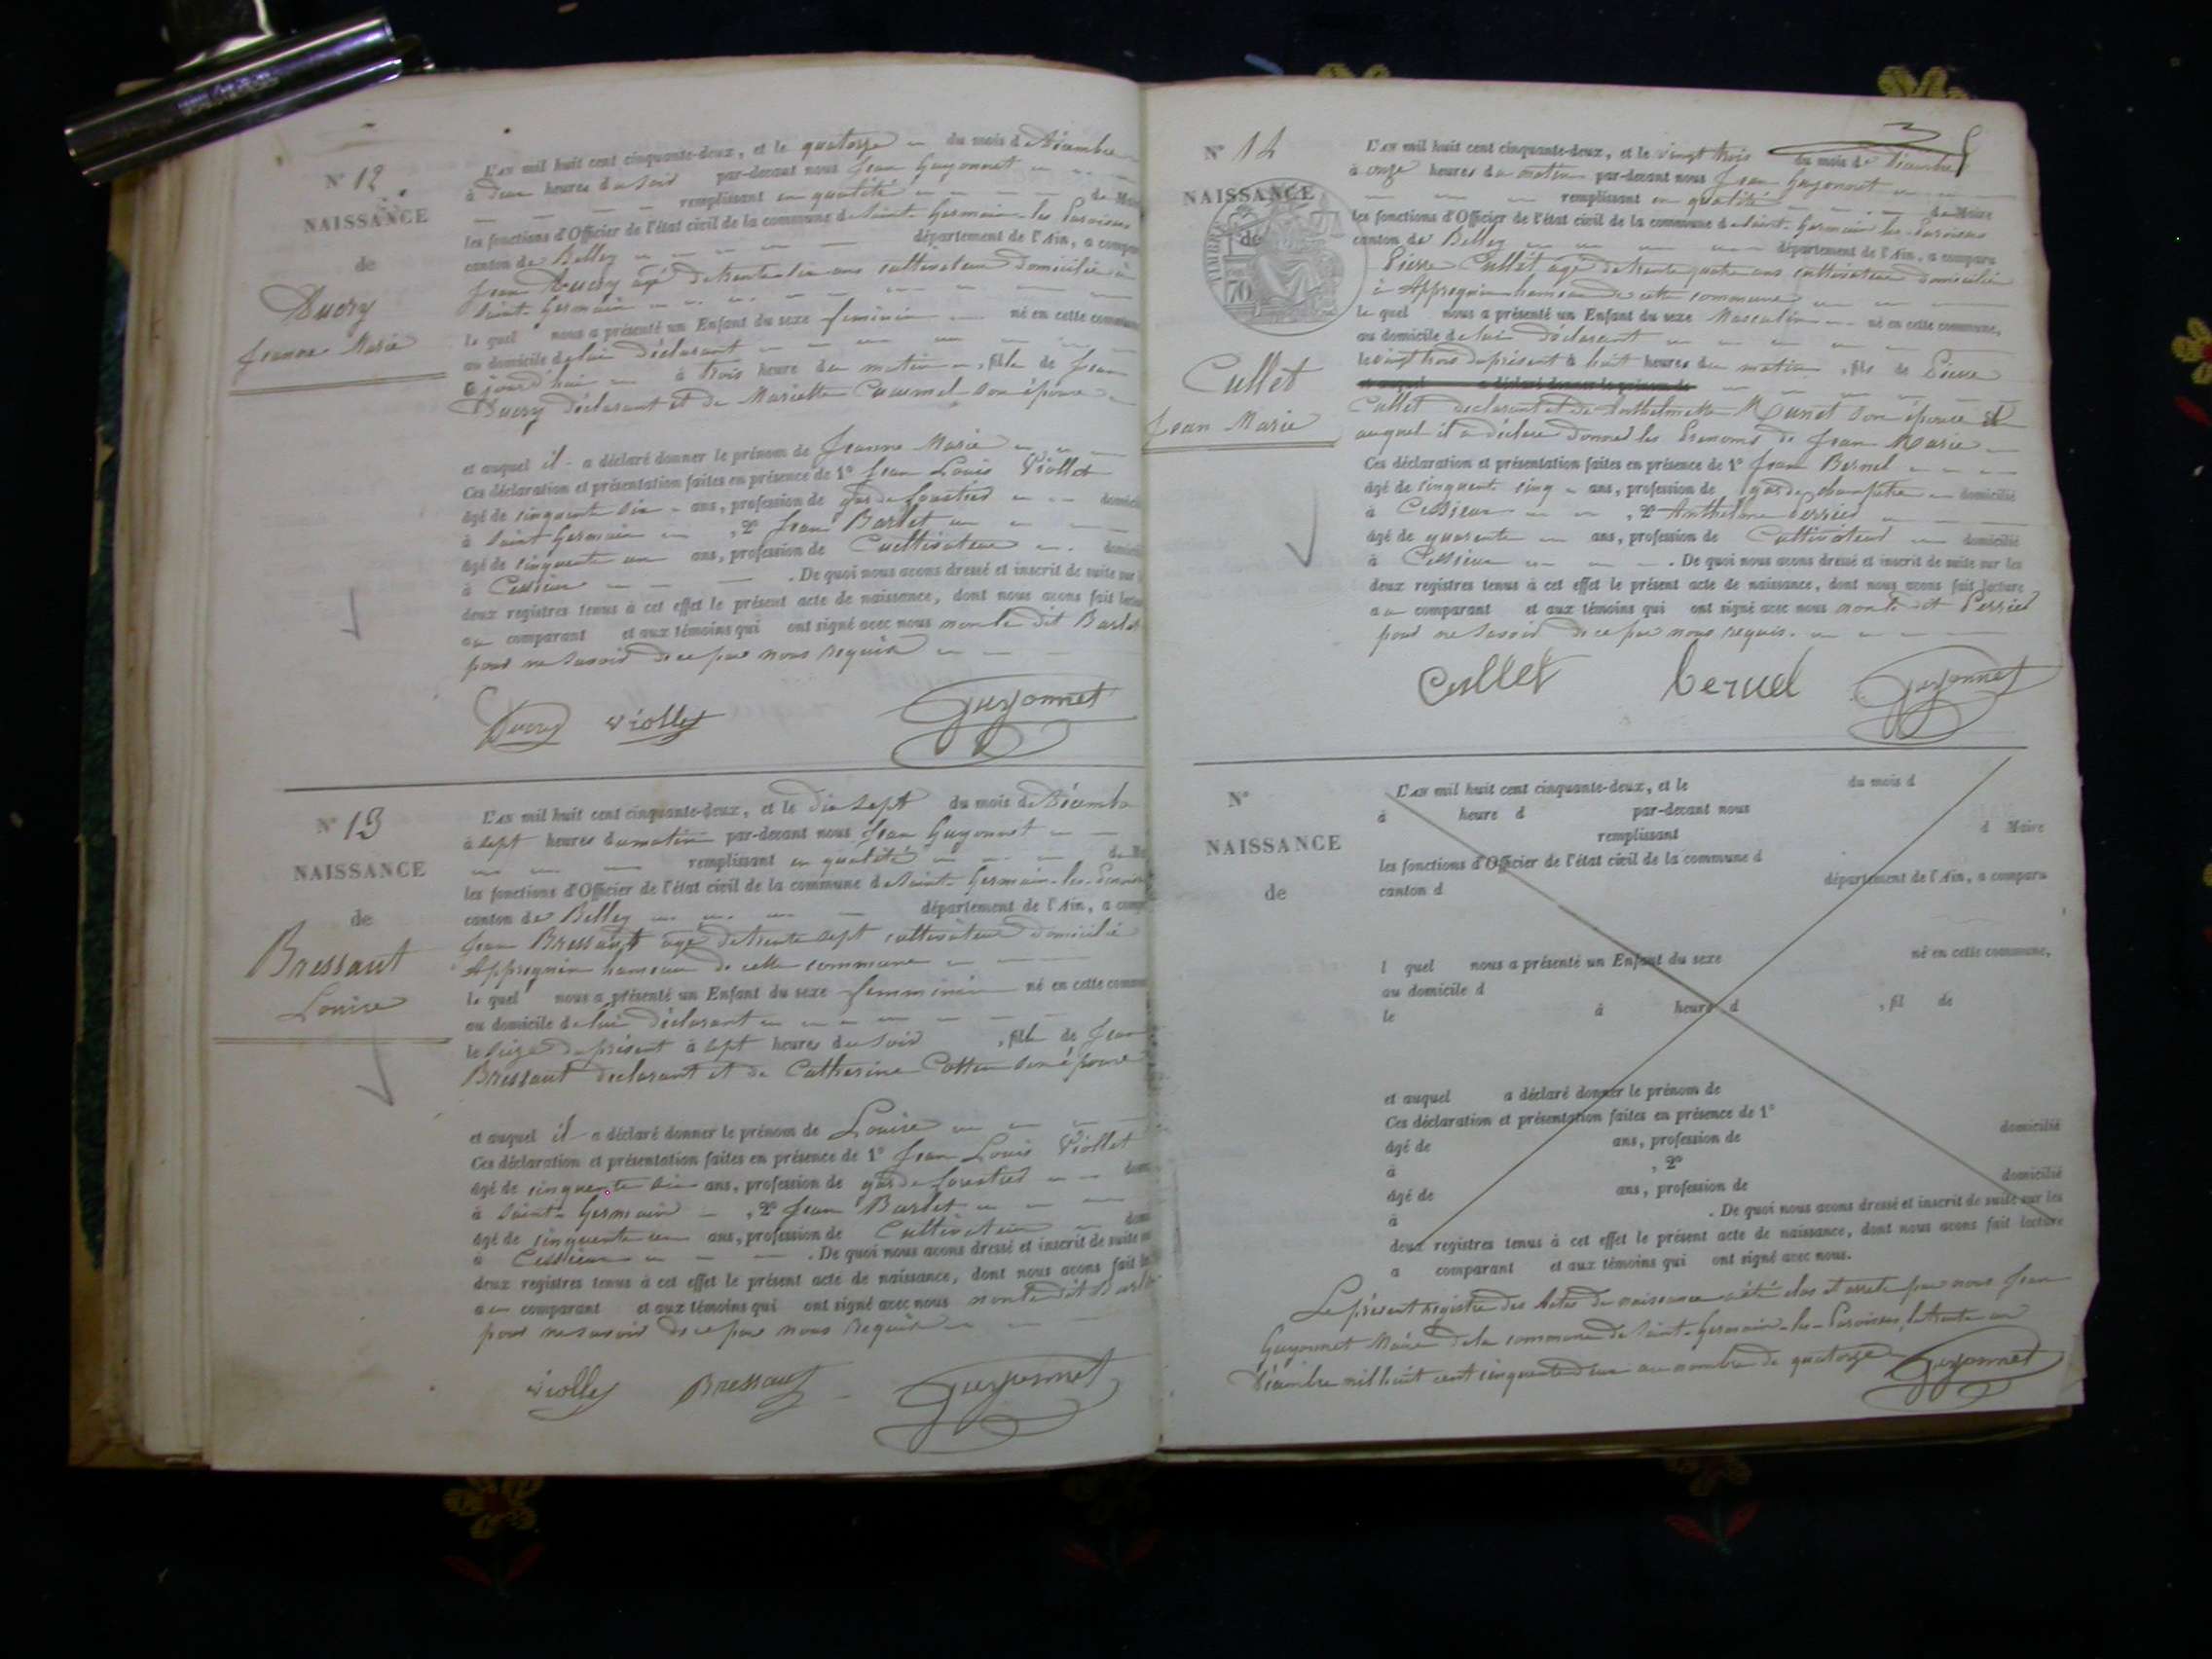 N° 12
NAISSANCE
de
Ducry
Jeanne Marie
L'AN mil huit cent cinquante-deux, et le quatorze du mois de Décembre
à deux heures du soir par-devant nous Jean Guyonnet
remplissant en qualité de Maire
les fonctions d'Officier de l'état civil de la commune de Saint-Germain-les-Paroisses
canton de Belley département de l'Ain, a comparu
Jean Ducry âgé de trente six ans cultivateur domicilié à
Saint-Germain
le quel nous a présenté un Enfant du sexe féminin né en cette commune
au domicile de lui déclarant
jourd'hui à trois heure du matin, fille de Jean
Ducry déclarant et de Mariette son épouse
et auquel il a déclaré donner le prénom de Jeanne Marie
Ces déclaration et présentation faites en présence de 1° Jean Louis Viollet
âgé de cinquante six ans, profession de garde forestier domicilié
à Saint Germain, 2° Jean Barlet
âgé de cinquante un ans, profession de Cultivateur domicilié
à Cessieux. De quoi nous avons dressé et inscrit de suite sur
deux registres tenus à cet effet le présent acte de naissance, dont nous avons fait lecture
au comparant et aux témoins qui ont signé avec nous non le dit Barlet
pour ne savoir de ce par nous requis
Ducry Viollet Guyonnet
N° 13
NAISSANCE
de
Bressaut
Louise
L'AN mil huit cent cinquante-deux, et le dix sept du mois de Décembre
à sept heures du matin par-devant nous Jean Guyonnet
remplissant en qualité de Maire
les fonctions d'Officier de l'état civil de la commune de Saint-Germain-les-Paroisses
canton de Belley département de l'Ain, a comparu
Jean Bressaut âgé de trente sept cultivateur domicilié
Appregnin hameau de cette commune
le quel nous a présenté un Enfant du sexe femminin né en cette commune
au domicile de lui déclarant
le seize du présent à sept heures du soir, fille de Jean
Bressaut déclarant et de Catherine Cotten son épouse
et auquel il a déclaré donner le prénom de Louise
Ces déclaration et présentation faites en présence de 1° Jean Louis Viollet
âgé de cinquante six ans, profession de garde forestier
à Saint-Germain, 2° Jean Barlet
âgé de cinquante un ans, profession de Cultivateur
à Cessieux. De quoi nous avons dressé et inscrit de suite
deux registres tenus à cet effet le présent acte de naissance, dont nous avons fait
au comparant et aux témoins qui ont signé avec nous non le dit Barlet
pour ne savoir de ce par nous requis
Viollet Bressaut Guyonnet
N° 14
NAISSANCE
de
TIMBRE
70
Cullet
Jean Marie
L'AN mil huit cent cinquante-deux, et le vingt trois du mois de Décembre
à onze heures du matin par-devant nous Jean Guyonnet
remplissant en qualité de Maire
les fonctions d'Officier de l'état civil de la commune de Saint-Germain-les-Paroisses
canton de Belley département de l'Ain, a comparu
Pierre Cullet âgé de trente quatre ans cultivateur domicilié
à Appregnin hameau de cette commune
le quel nous a présenté un Enfant du sexe Masculin né en cette commune,
au domicile de lui déclarant
le vingt trois du présent à huit heures du matin, fils de Pierre
et auquel a déclaré donner le prénom de
Cullet declarant et de Anthelmette Munet son épouse et
auquel il a déclaré donner les Prenoms de Jean Marie
Ces déclaration et présentation faites en présence de 1° Jean Bernel
âgé de cinquante cinq ans, profession de garde champêtre domicilié
à Cessieux, 2° Anthelme Perrier
âgé de quarante ans, profession de Cultivateur domicilié
à Cessieux. De quoi nous avons dressé et inscrit de suite sur les
deux registres tenus à cet effet le présent acte de naissance, dont nous avons fait lecture
au comparant et aux témoins qui ont signé avec nous non le dit Perrier
pour ne savoir de ce par nous requis.
Cullet bernel Guyonnet
N°
NAISSANCE
de
L'AN mil huit cent cinquante-deux, et le du mois d
à heure d par-devant nous
remplissant d Maire
les fonctions d'Officier de l'état civil de la commune d
canton d département de l'Ain, a comparu
l quel nous a présenté un Enfant du sexe né en cette commune,
au domicile d
le à heure d , fil de
et auquel a déclaré donner le prénom de
Ces déclaration et présentation faites en présence de 1°
âgé de ans, profession de domicilié
à , 2°
âgé de ans, profession de domicilié
à . De quoi nous avons dressé et inscrit de suite sur les
deux registres tenus à cet effet le présent acte de naissance, dont nous avons fait lecture
a comparant et aux témoins qui ont signé avec nous.
Le présent registre des Actes de naissance a été clos et arreté par nous Jean
Guyonnet Maire de la commune de Saint-Germain-les-Paroisses, le trente un
Décembre mil huit cent cinquante deux au nombre de quatorze Guyonnet